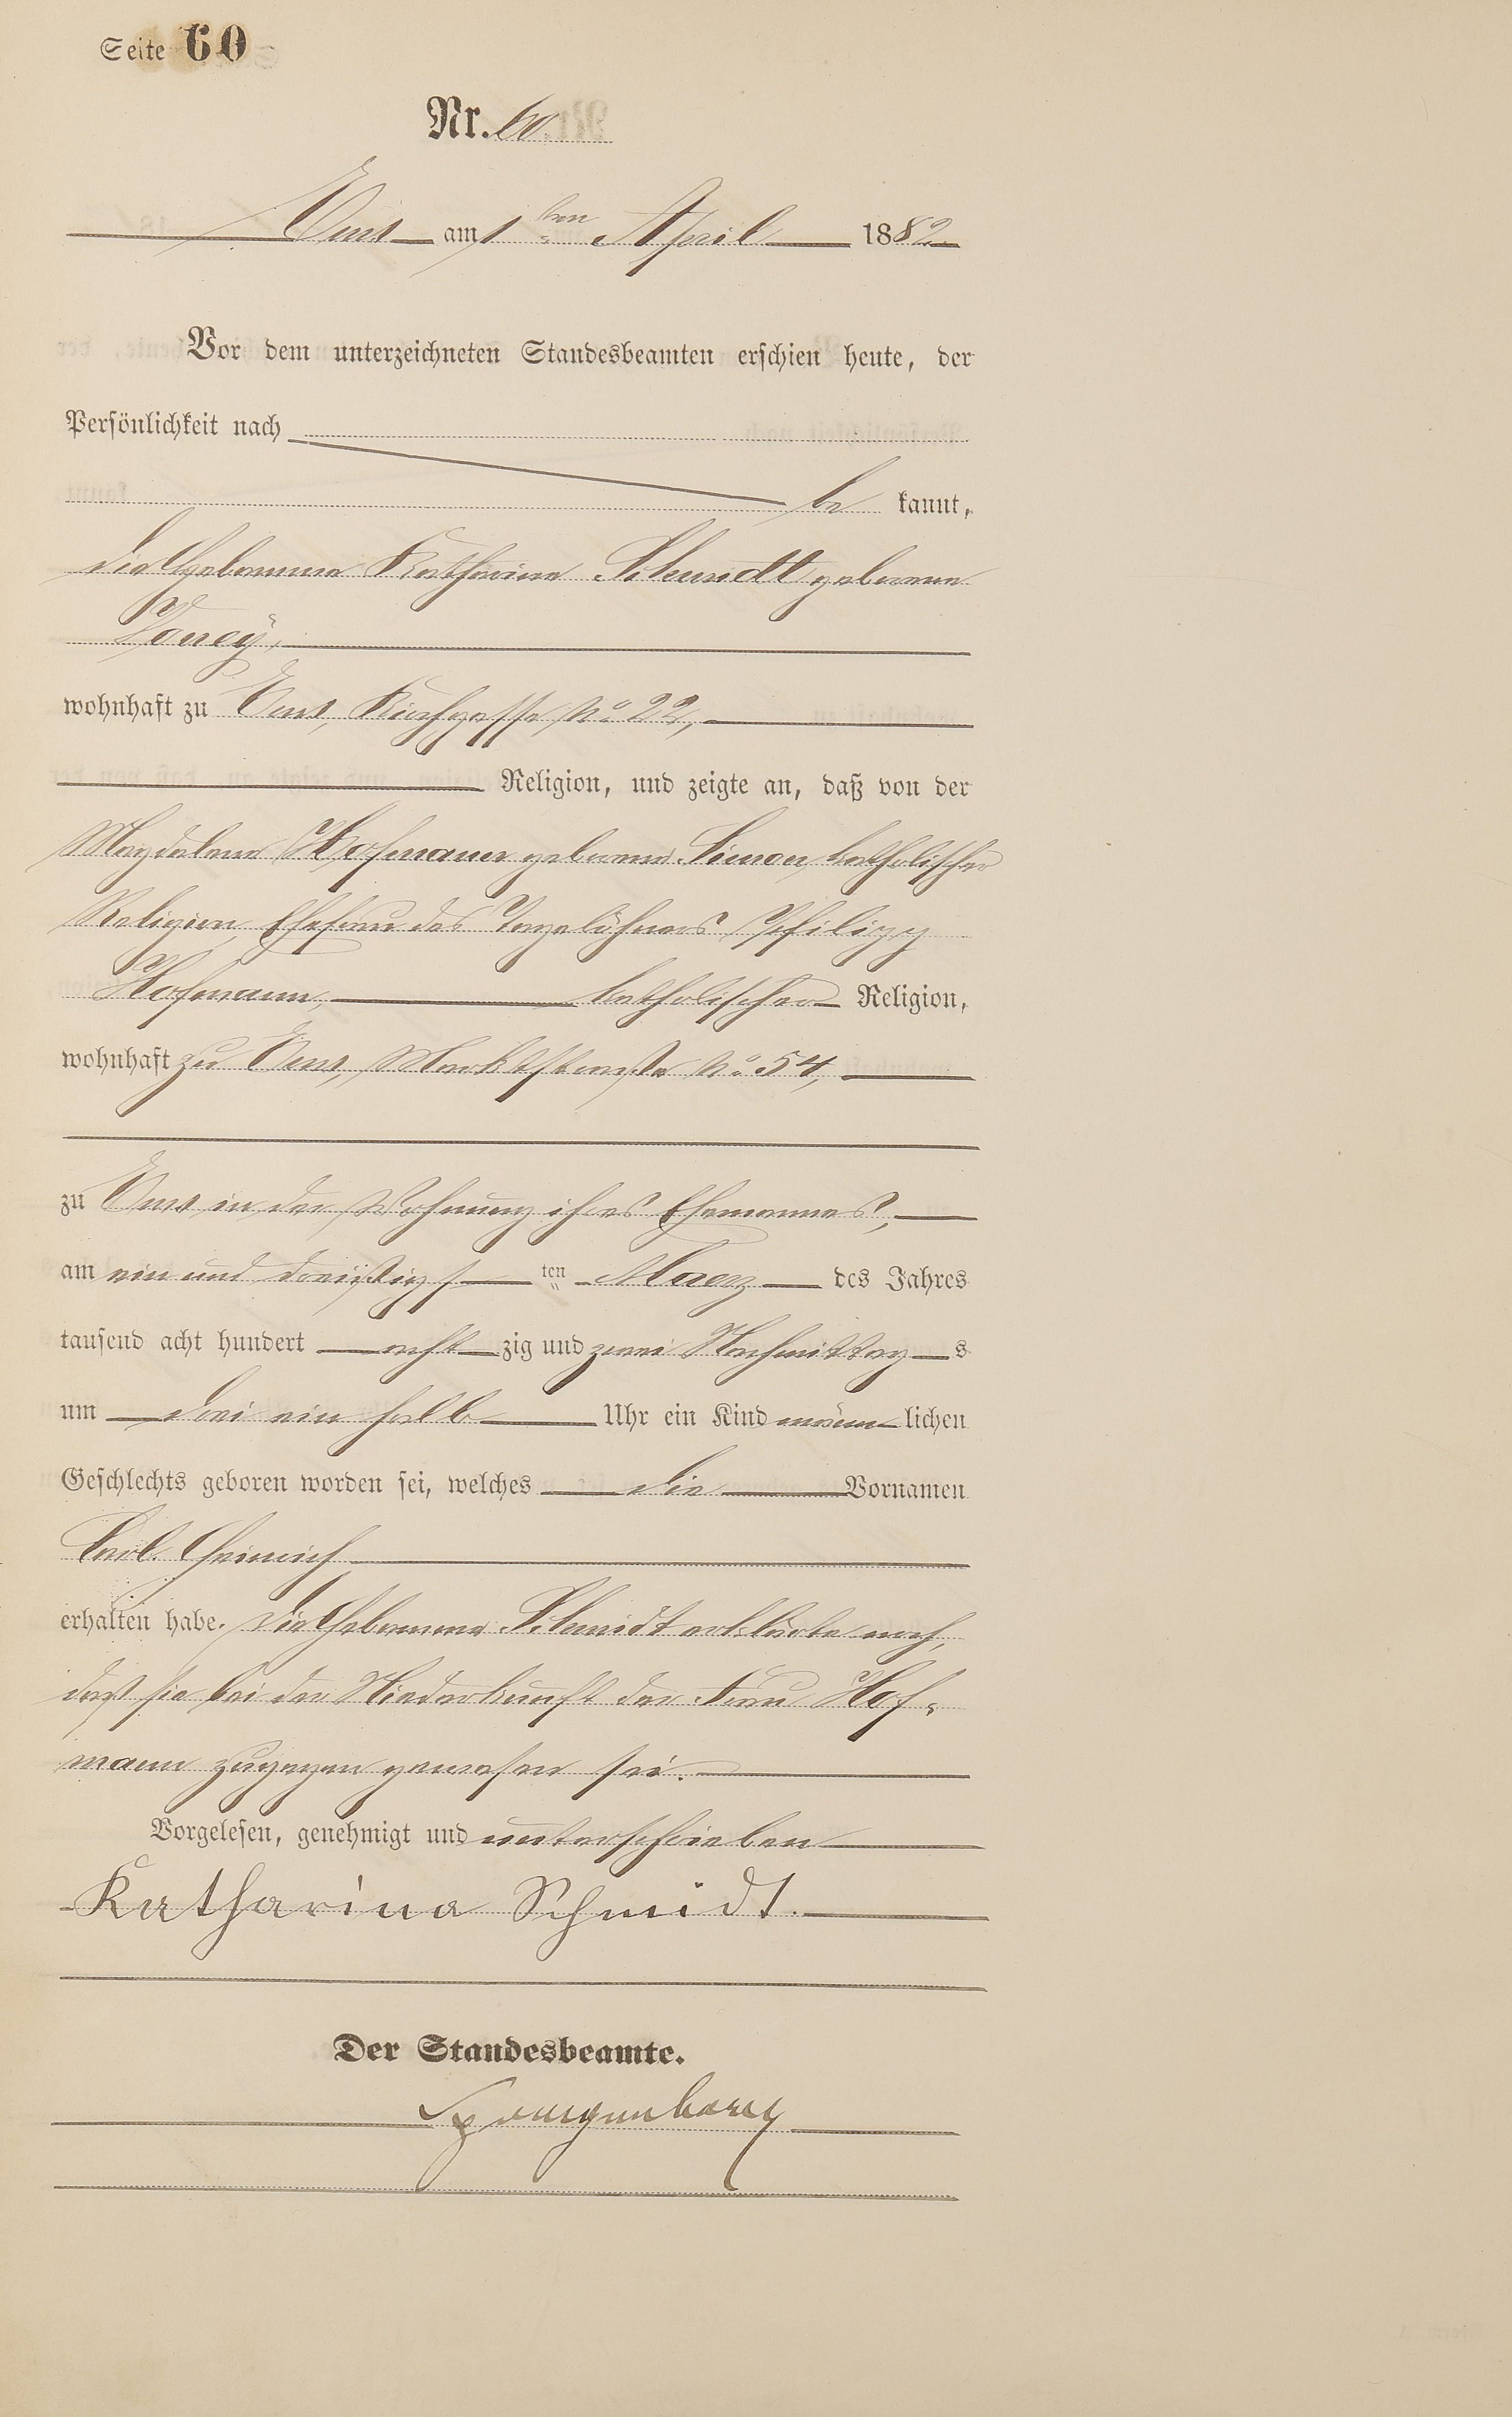 Seite 60
Nr. 60
Ems am 1ten April 1882
Vor dem unterzeichneten Standesbeamten erschien heute, der
Persönlichkeit nach
be kannt,
die Hebamme Katharina Schmidt geborene
wohnhaft zu Ems, Kirchgasse No 22,
Religion, und zeigte an, daß von der
Magdalena Hofmann geborene Simon, katholischer
Religion, Ehefrau des Tagelöhners Philipp
Hofmann, katholischer Religion,
wohnhaft zu Ems, Marktstraße No 54,
zu Ems in der Wohnung ihres Ehemannes,
am ein und dreißigs ten Maerz des Jahres
tausend acht hundert acht zig und zwei Nachmittag s
um drei ein halb Uhr ein Kind männ lichen
Geschlechts geboren worden sei, welches die Vornamen
Carl Heinrich
erhalten habe. Die Hebamme Schmidt erklärte noch,
daß sie bei der Niederkunft der Frau Hof-
mann zugegen gewesen sei.
Vorgelesen, genehmigt und unterschrieben
Katharina Schmidt.
Der Standesbeamte.
Spangenberg